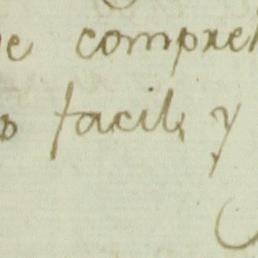 e compre
o facil, y